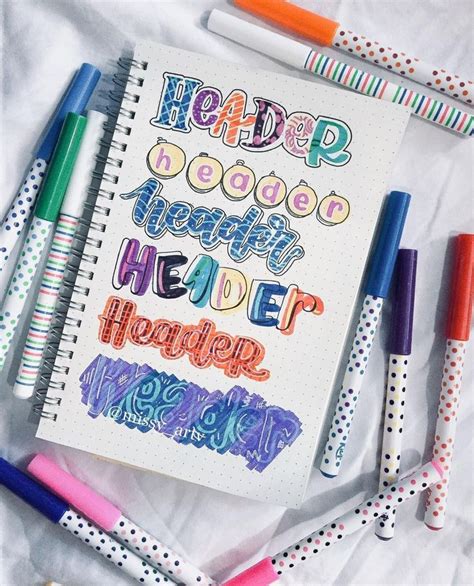 HEADER
header
header
HEADER
Header
Header
@missy_arty